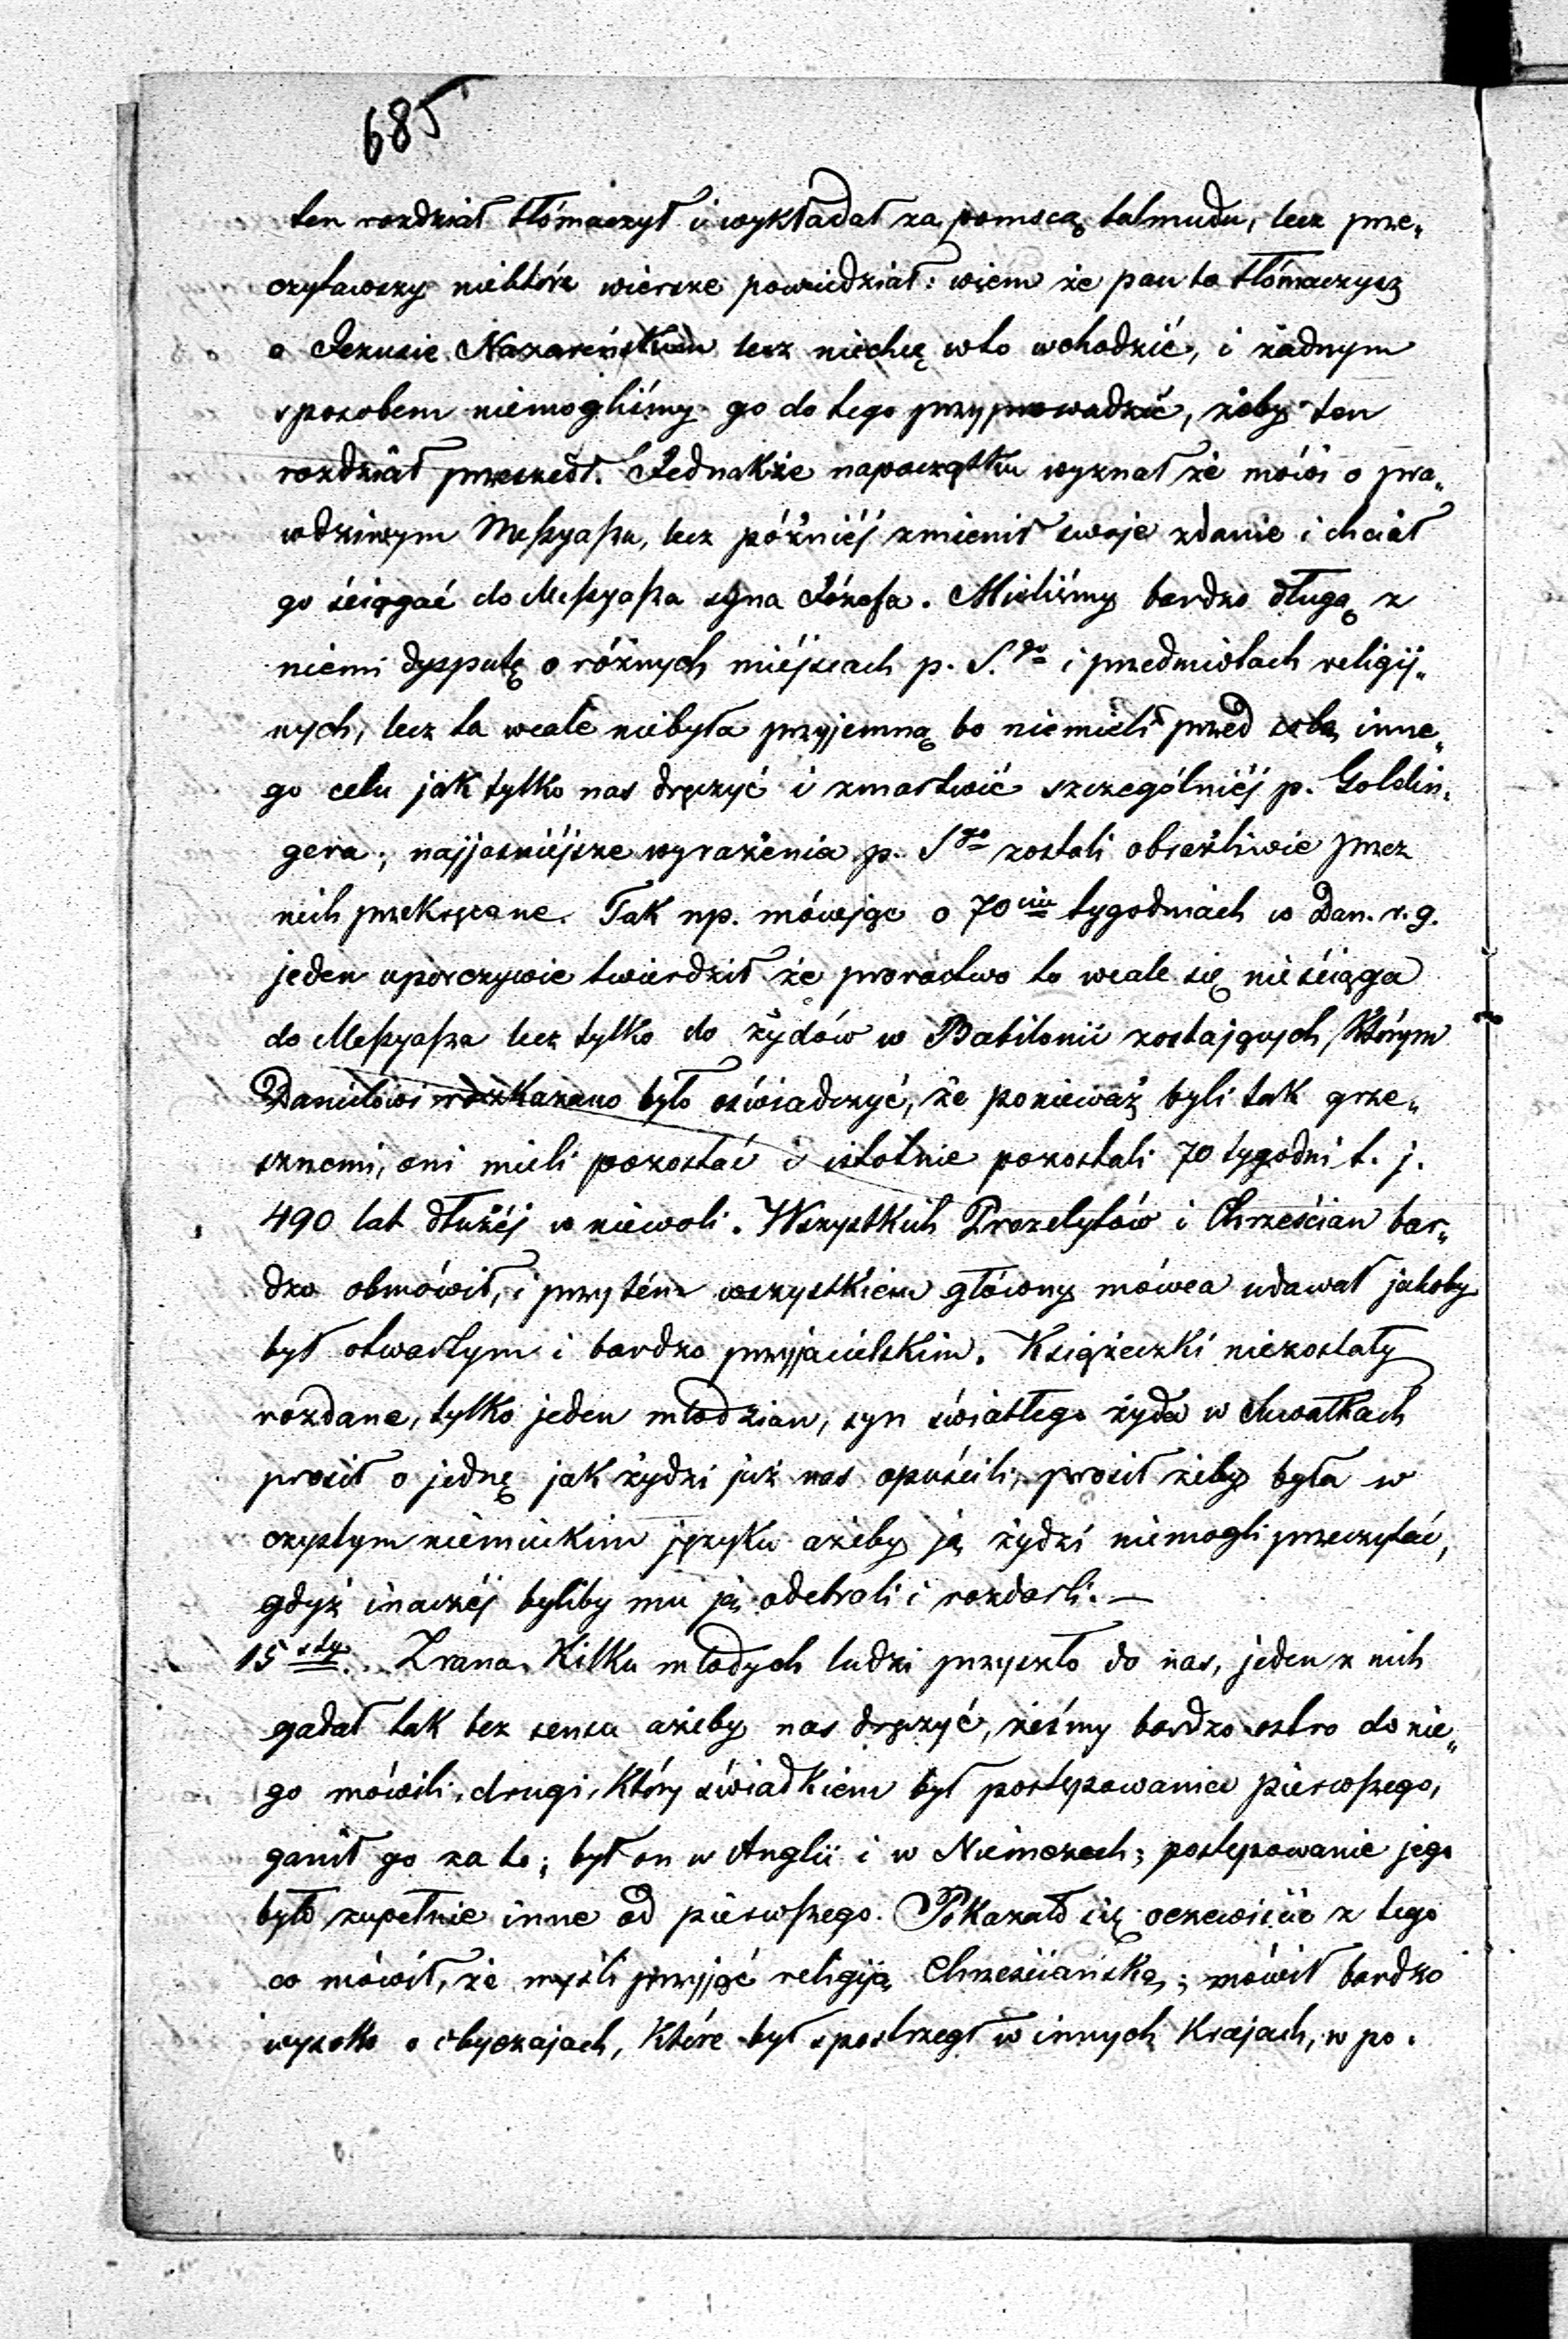 685
ten rozdział tłómaczył i wykładał za pomocą talmudu, lecz prze„
czytawszy niektóre wiersze powiedział: wiem że pan to tłómaczysz
o Jezusie Nazareńskim lecz niechcę wto wchodzić, i żadnym
sposobem niemogliśmy go do tego przyprowadzić, żeby ten
rozdział przeszedł. Jednakże napoczątku wyznał że mówi o pra„
wdziwym Meßyaßu, lecz późniéj zmienił swoje zdanie i chciał
go ściągać do Meßyaßa syna Józefa. Mieliśmy bardzo długą z
niemi dysputę o różnych miéjscach p. S.go i przedmiotach religij„
nych, lecz ta wcale niebyła przyjemną bo niemieli przed sobą inne„
go celu jak tylko nas dręczyć i zmartwić szczególniéj p. Goldin„
gera; najjaśniéjsze wyrażenia p. Sgo zostali obraźliwie przez
nich przekręcane. Tak np. mówiąc o 70ciu tygodniach w Dan. r. 9.
jeden uporczywie twierdził że proroctwo to wcale się nieściąga
do Meßyaßa lecz tylko do żydów w Babilonii zostających, którym
Danielowi rozkazano było oświadczyć, że ponieważ byli tak grze„
sznemi, oni mieli pozostać i istotnie pozostali 70 tygodni t. j.
490 lat dłużéj w niewoli. Wszystkich Prozelytów i Chrześcian bar„
dzo obmówił, i przytém wszystkiem główny mówca udawał jakoby
był otwartym i bardzo przyjacielskim. Książeczki niezostały
rozdane, tylko jeden młodzian, syn światłego żyda w Suwałkach
prosił o jednę jak żydzi już nas opuścili, prosił żeby była w
czystym niemieckim języku ażeby ją żydzi niemogli przeczytać,
gdyż inaczéj byliby mu ją odebrali i rozdarli. —
15sty. Zrana. Kilku młodych ludzi przyszło do nas, jeden z nich
gadał tak bez sensu ażeby nas dręczyć, żeśmy bardzo ostro do nie„
go mówili, drugi, który świadkiem był postępowania pierwßego,
ganił go za to; był on w Anglii i w Niemczech; postępowanie jego
było zupełnie inne od pierwßego. Pokazało się oczewiście z tego
co mówił, że myśli przyjąć religiją Chrześciańską; mówił bardzo
wysoko o obyczajach, które był spostrzegł w innych krajach, w po„